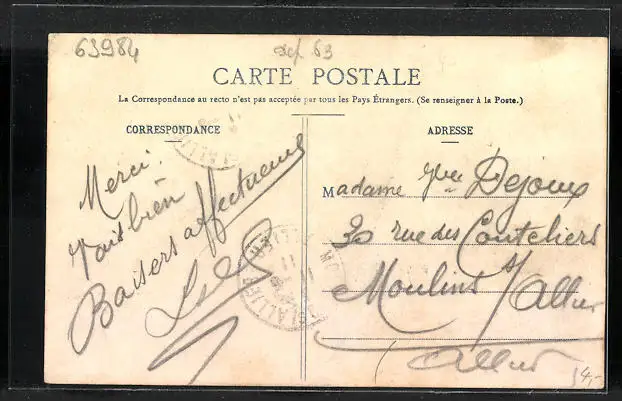 63984
dep. 63
CARTE POSTALE
La Correspondance au recto n'est pas acceptée par tous les Pays Étrangers. (Se renseigner à la Poste.)
CORRESPONDANCE
Merci.
bien
Baisers affectueux
ADRESSE
Madame Dejoux
30 rue des Couteliers
Moulins s/ Allier
Allier
4,-